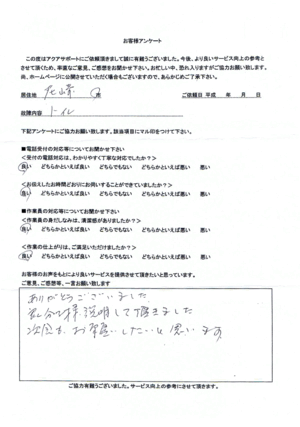 お客様アンケート
この度はアクアサポートにご依頼頂きまして誠に有難うございました。今後、より良いサービス向上の参考と
させて頂くため、率直なご意見、ご感想をお聞かせ下さい。お忙しい中、恐れ入りますがご協力お願い致します。
尚、ホームページに公開させていただく場合もございますので、あらかじめご了承下さい。
居住地 市 ご依頼日 平成 年 月 日
故障内容 トイレ
下記アンケートにご協力お願い致します。該当項目にマル印をつけて下さい。
■電話受付の対応等についてお聞かせ下さい
<受付の電話対応は、わかりやすく丁寧な対応でしたか?>
良い どちらかといえば良い どちらでもない どちらかといえば悪い 悪い
<お伝えしたお時間どおりにお伺いすることができていましたか?>
良い どちらかといえば良い どちらでもない どちらかといえば悪い 悪い
■作業員の対応等についてお聞かせ下さい
<作業員の身だしなみは、清潔感がありましたか?>
良い どちらかといえば良い どちらでもない どちらかといえば悪い 悪い
<作業の仕上がりは、ご満足いただけましたか?>
良い どちらかといえば良い どちらでもない どちらかといえば悪い 悪い
お客様のお声をもとにより良いサービスを提供させて頂きたいと思っています。
ご意見、ご感想等、一言お願い致します
ありがとうございました
説明して頂きました
次回も、お願いしたいと思います
ご協力有難うございました。サービス向上の参考にさせて頂きます。